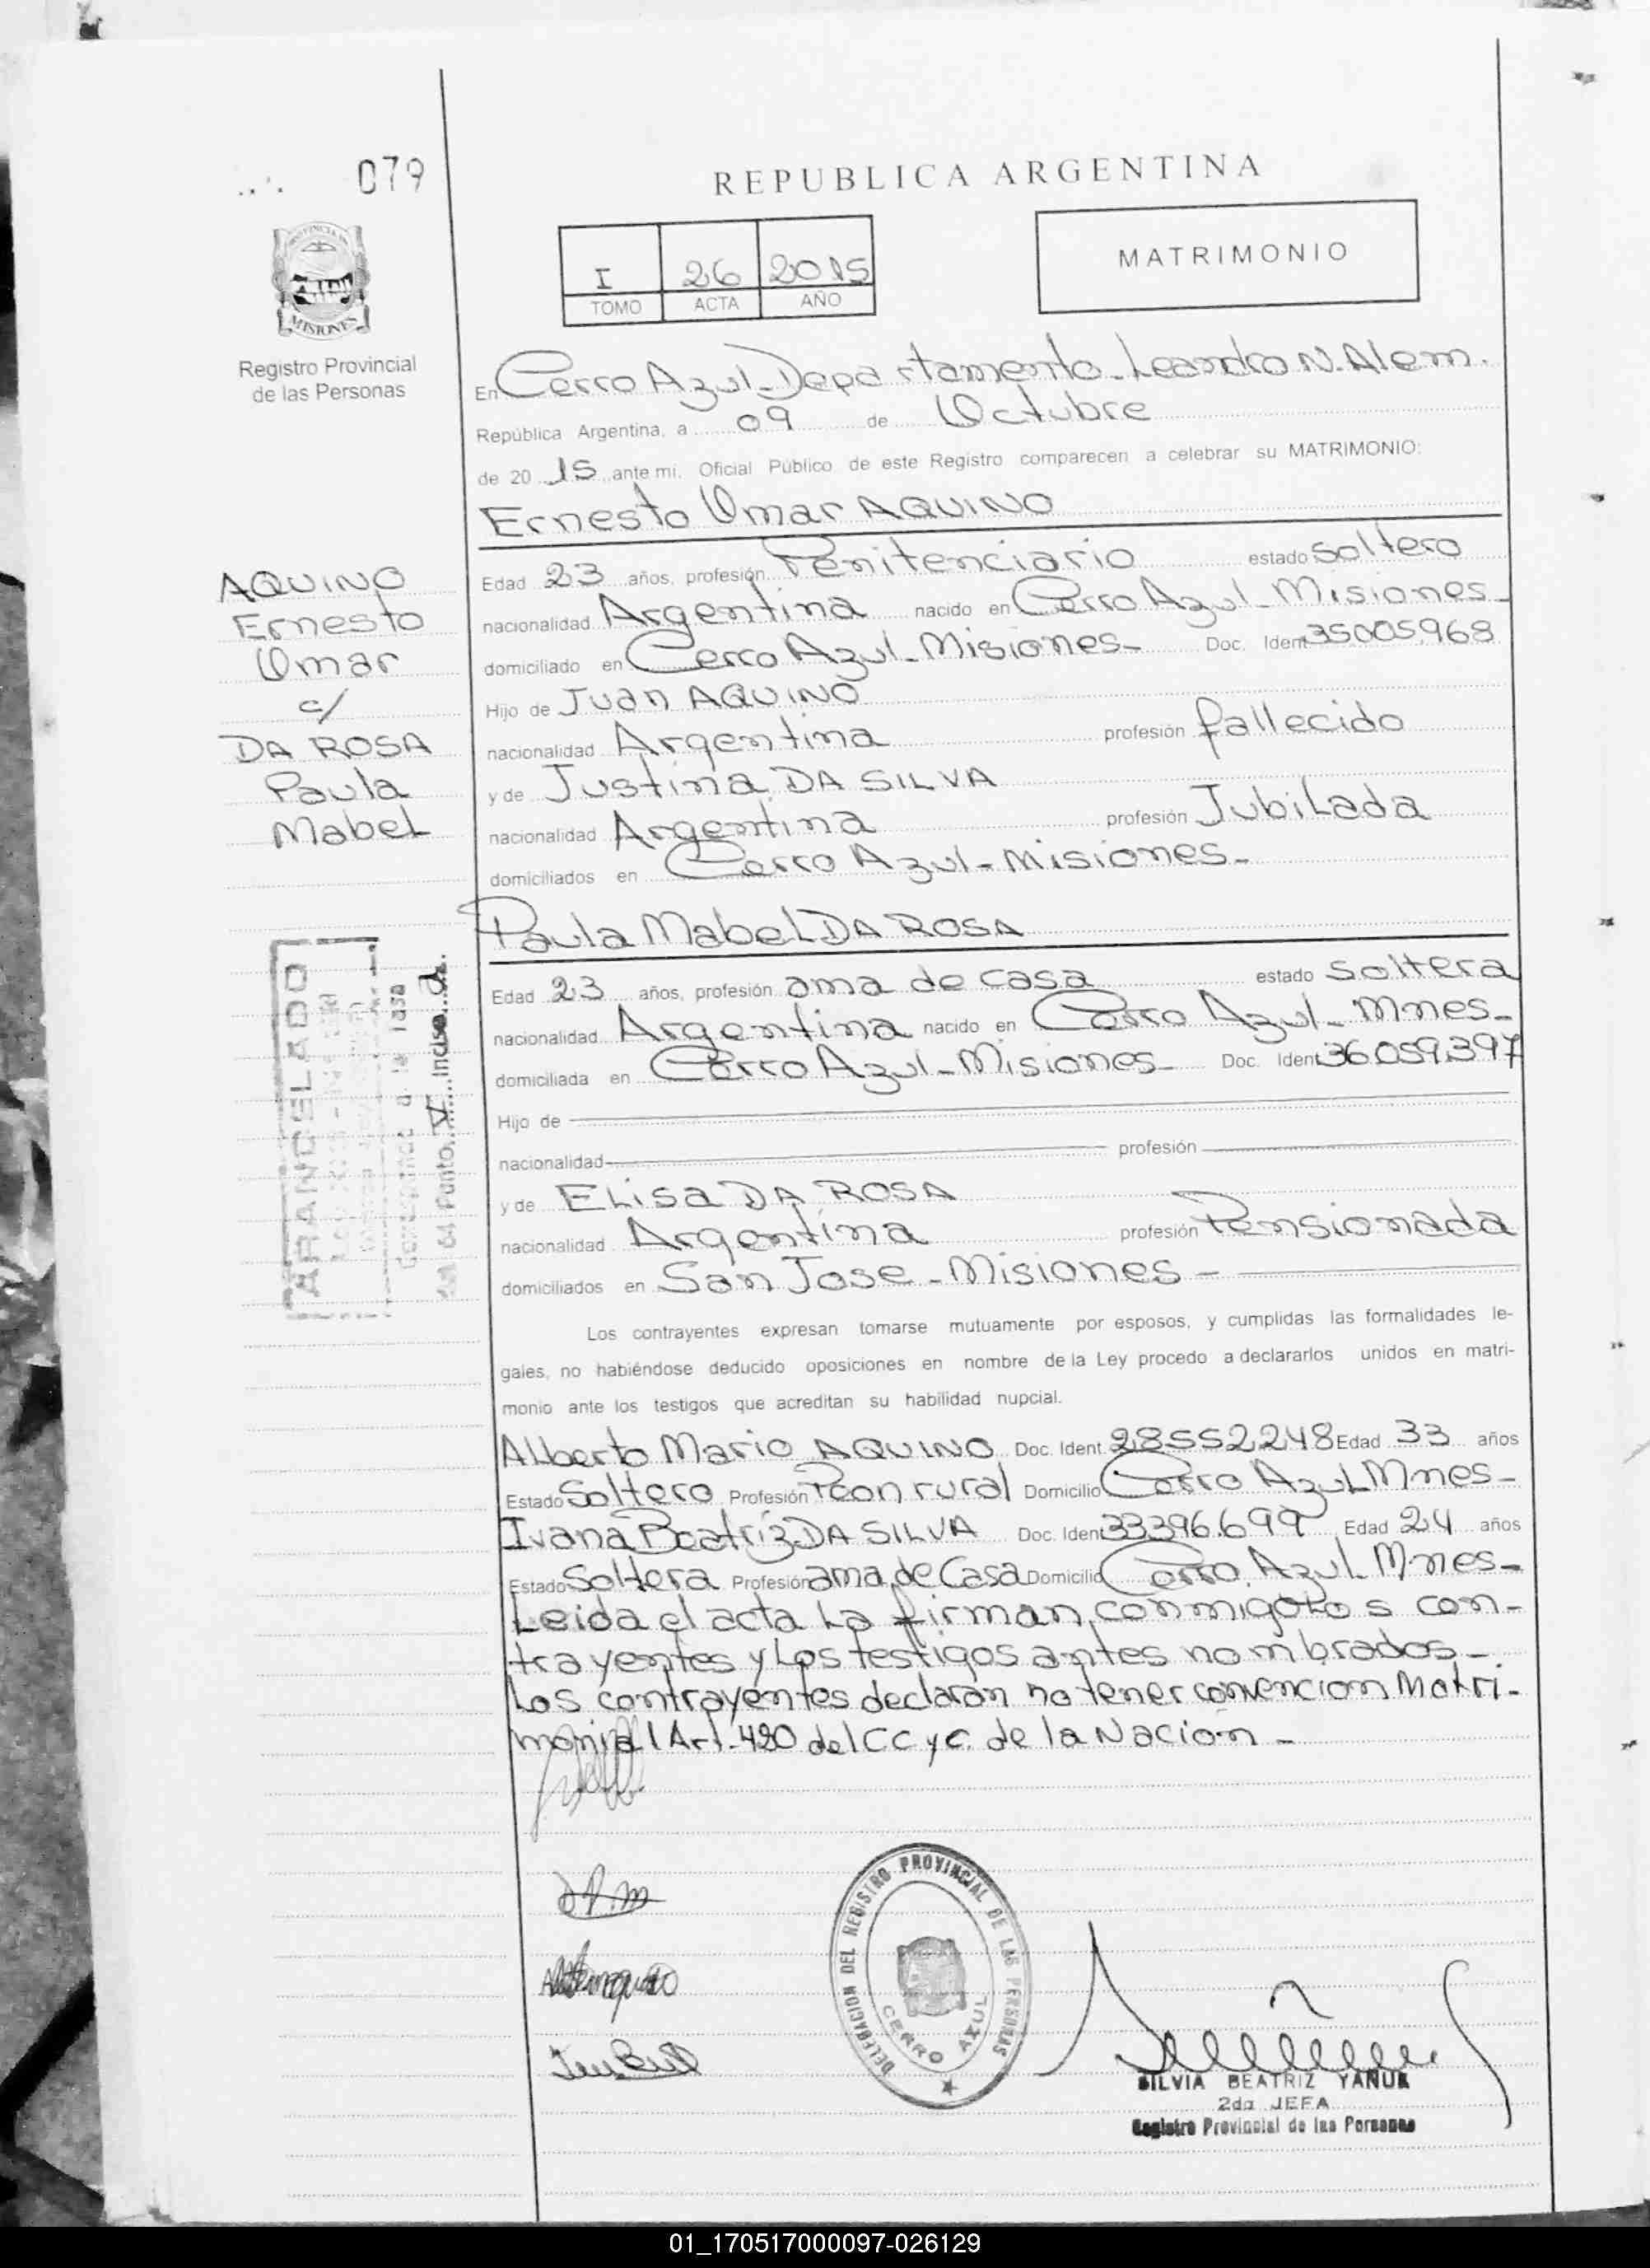 079
REPUBLICA ARGENTINA
I 26 2015
TOMO ACTA AÑO
MATRIMONIO
MISIONES
Registro Provincial
de las Personas
En Cerro Azul-Departamento-Leandro N. Alem.
República Argentina, a 09 de Octubre
de 20 15 ante mi, Oficial Público de este Registro comparecen a celebrar su MATRIMONIO:
Ernesto Omar AQUINO
AQUINO
Ernesto
Omar
c/
DA ROSA
Paula
Mabel
Edad 23 años, profesión Penitenciario estado Soltero
nacionalidad Argentina nacido en Cerro Azul-Misiones-
domiciliado en Cerro Azul-Misiones- Doc. Ident 35005968
Hijo de Juan AQUINO
nacionalidad Argentina profesión fallecido
y de Justina DA SILVA
nacionalidad Argentina profesión Jubilada
domiciliados en Cerro Azul-Misiones-
Paula Mabel DA ROSA
Edad 23 años, profesión ama de casa estado Soltera
nacionalidad Argentina nacido en Cerro Azul-Mnes-
domiciliada en Cerro Azul-Misiones- Doc. Ident 36.059.397
Hijo de
nacionalidad profesión
y de Elisa DA ROSA
nacionalidad Argentina profesión Pensionada
domiciliados en San Jose-Misiones-
ARANCELADO
a la Tasa
64 Punto V inciso a.
Los contrayentes expresan tomarse mutuamente por esposos, y cumplidas las formalidades le-
gales, no habiéndose deducido oposiciones en nombre de la Ley procedo a declararlos unidos en matri-
monio ante los testigos que acreditan su habilidad nupcial.
Alberto Mario AQUINO Doc. Ident. 28552248 Edad 33 años
Estado Soltero Profesión Peon rural Domicilio Cerro Azul Mnes-
Ivana Beatriz DA SILVA Doc. Ident 33396.699 Edad 24 años
Estado Soltera Profesión ama de Casa Domicilio Cerro Azul Mnes-
Leida el acta la firman conmigo los con-
trayentes y los testigos antes nombrados-
Los contrayentes declaran no tener convencion Matri-
monial Art. 420 del CC y C. de la Nacion-
DELEGACION DEL REGISTRO PROVINCIAL DE LAS PERSONAS
CERRO AZUL
SILVIA BEATRIZ YANUK
2da JEFA
Registro Provincial de las Personas
01_170517000097-026129